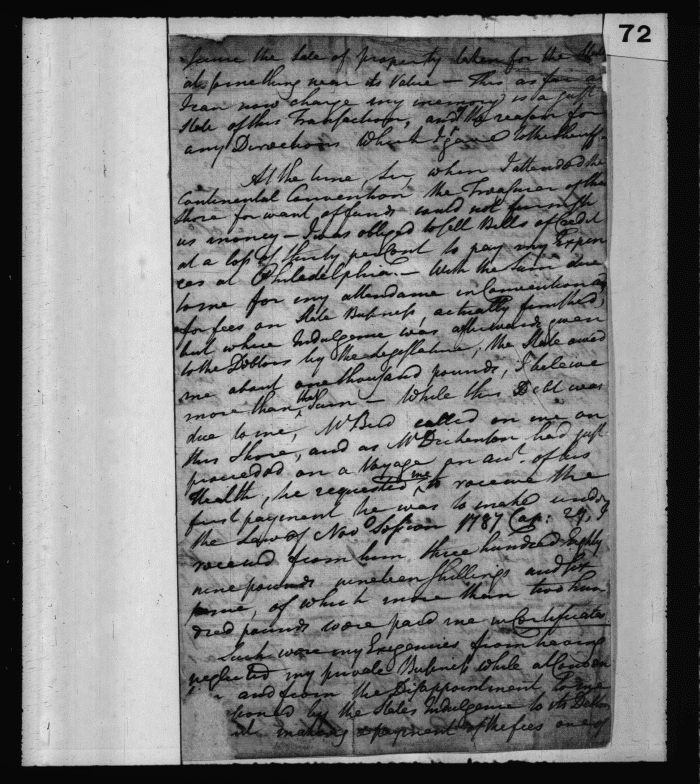 72
secure the Sale of property taken for the State
at something near its Value — This as far as
I can now charge my memory is a just
State of this Transaction, and the reason for
any Directions which I gave to the Sheriff.
At the time, Sir, when I attended the
Continental Convention the Treasurer of this
Shore for want of funds could not furnish
us money — I was obliged to sell Bills of Credit
at a loss of thirty per Cent to pay my Expen
ces at Philadelphia — With the Sum due
to me for my attendance in Convention and
for fees on State Business, actually finished,
but where Indulgence was afterwards given
to the Debtors by the Legislature, the State owed
me about one thousand pounds, I believe
more than that Sum — While this Debt was
due to me, Mr called on me on
this Shore, and as Mr had just
proceeded on a Voyage on acct. of his
Health, he requested me to receive the
first payment he was to make under
the Law of Novr Session 1787 Cap: I
received from him three hundred eighty
nine pounds nineteen Shillings and six
pence, of which more than two hun
dred pounds were paid me in Certificates
Such were my Exigencies from having
neglected my private Business while at
and from the Disappointment to me
by the States Indulgence to its Debtors
making payment of the fees one of